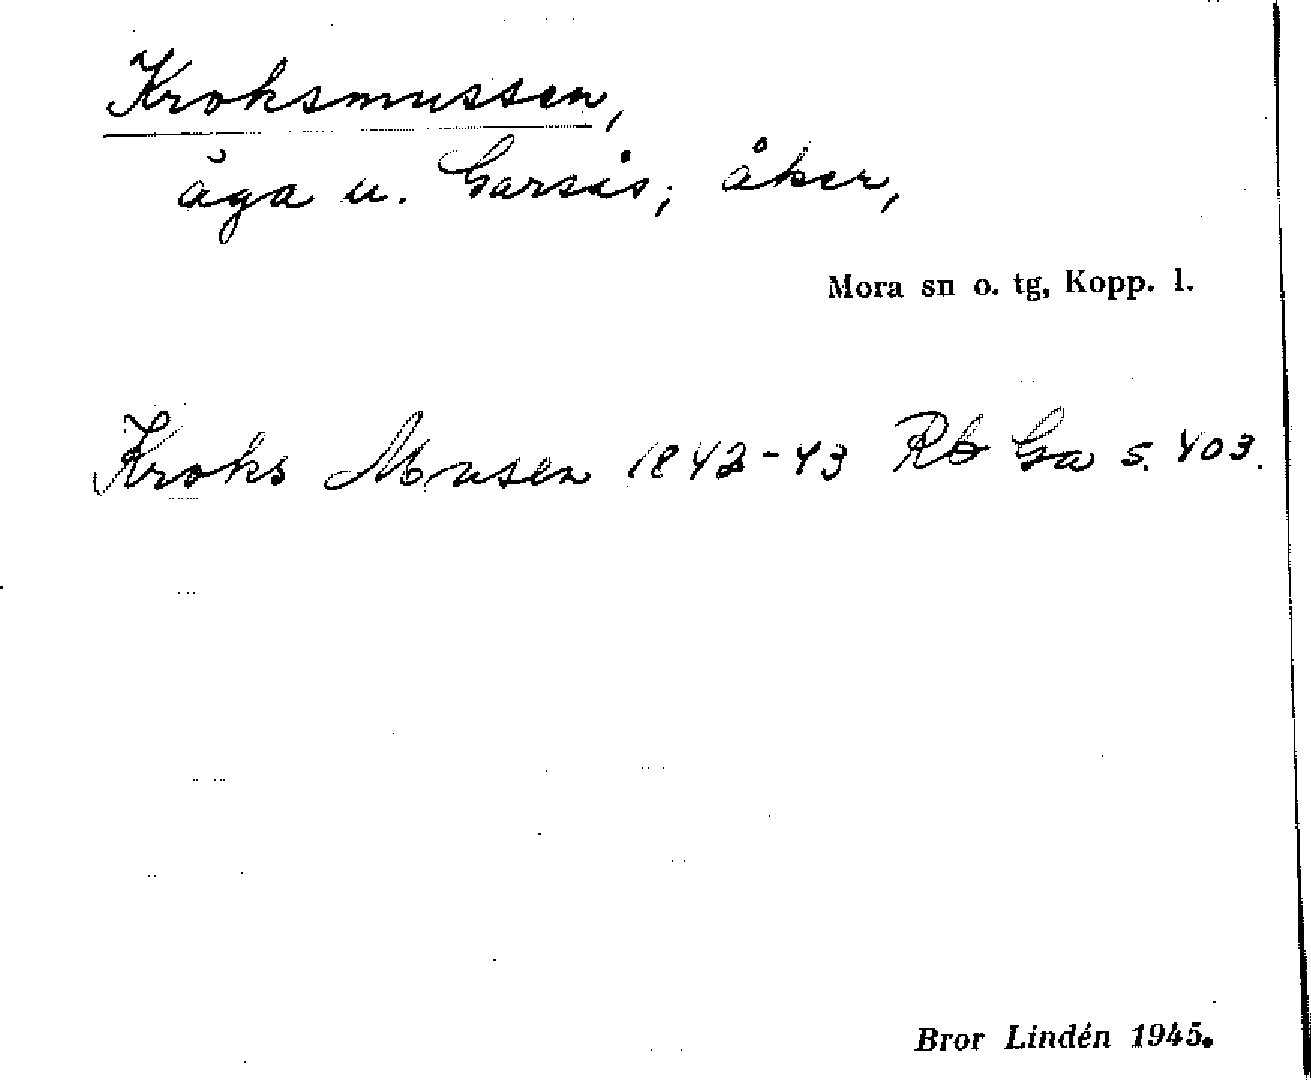 Kroksmussen,
äga u. Garsås; åker,
Mora sn o. tg, Kopp. l.
Kroks Musen 1842-43 Rb Ga s. 403.
Bror Lindén 1945.